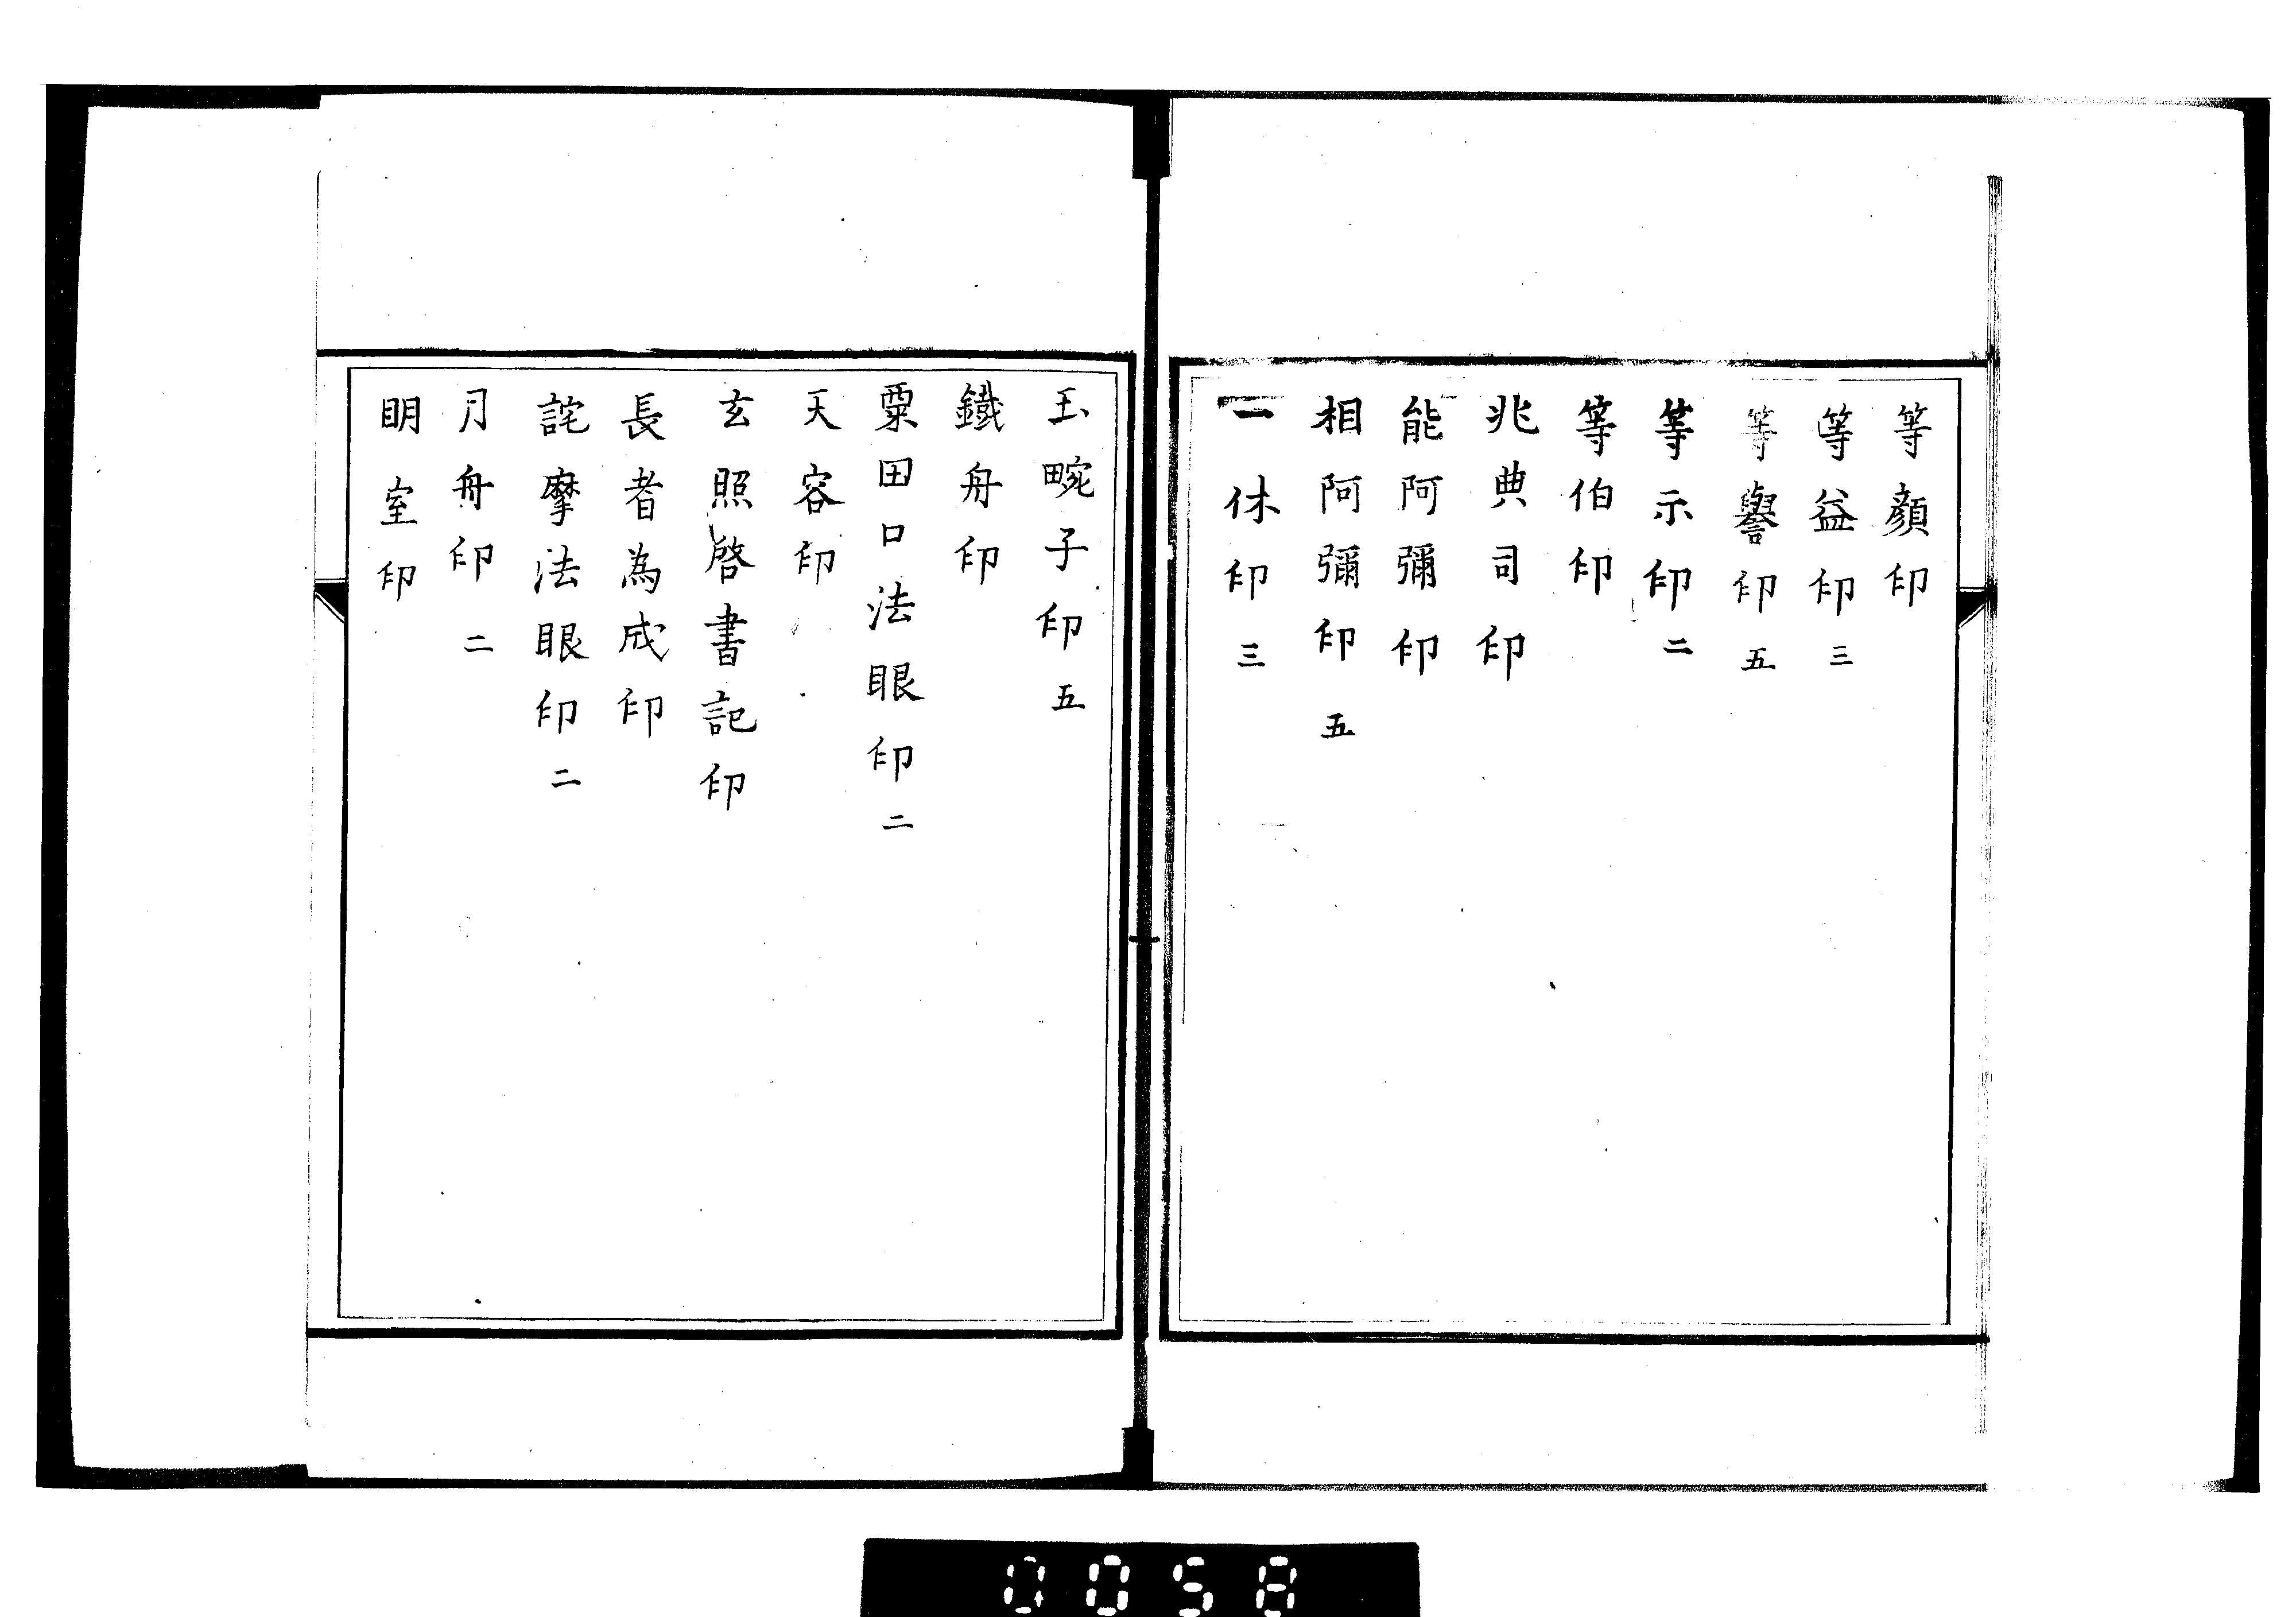 等顔印
等益印三
等譽印五
等示印二
等伯印
兆典司印
能阿彌印
相阿彌印五
一休印三
玉畹子印五
鐵舟印
粟田口法眼印二
天容印
玄照啓書記印
長者為成印
詫摩法眼印二
月舟印二
明室印
0058